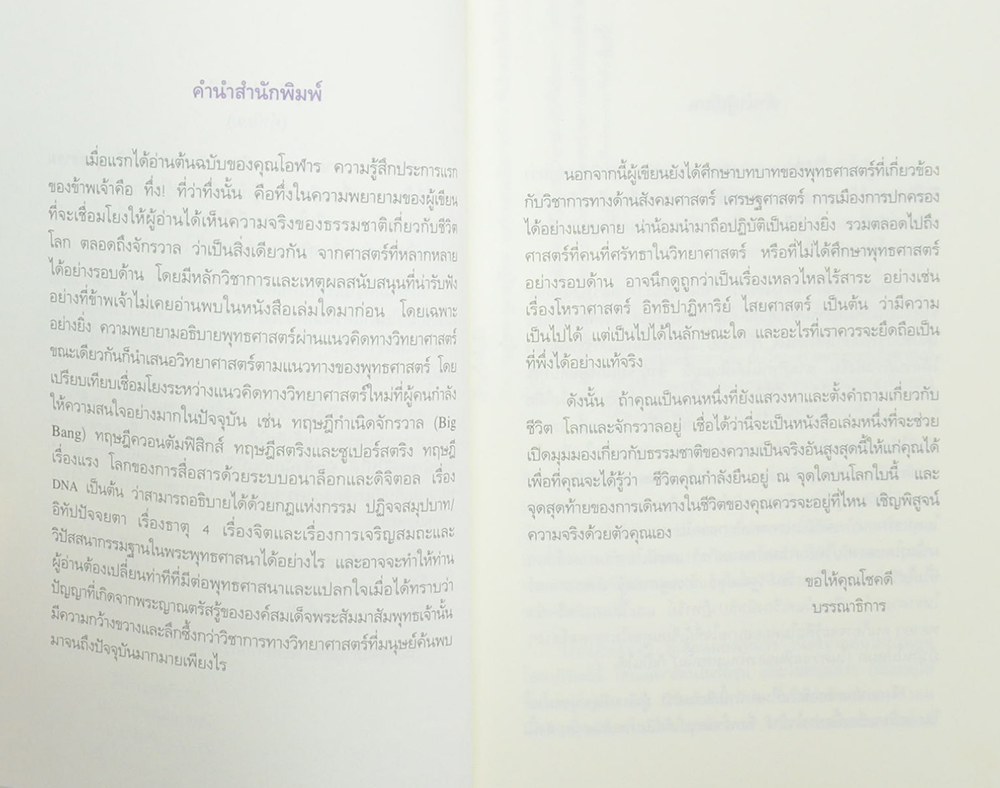 คำนำสำนักพิมพ์
เมื่อแรกได้อ่านต้นฉบับของคุณโอฬาร ความรู้สึกประการแรก
ของข้าพเจ้าคือ ทึ่ง! ที่ว่าทึ่งนั้น คือทึ่งในความพยายามของผู้เขียน
ที่จะเชื่อมโยงให้ผู้อ่านได้เห็นความจริงของธรรมชาติเกี่ยวกับชีวิต
โลก ตลอดถึงจักรวาล ว่าเป็นสิ่งเดียวกัน จากศาสตร์ที่หลากหลาย
ได้อย่างรอบด้าน โดยมีหลักวิชาการและเหตุผลสนับสนุนที่น่ารับฟัง
อย่างที่ข้าพเจ้าไม่เคยอ่านพบในหนังสือเล่มใดมาก่อน โดยเฉพาะ
อย่างยิ่ง ความพยายามอธิบายพุทธศาสตร์ผ่านแนวคิดทางวิทยาศาสตร์
ขณะเดียวกันก็นำเสนอวิทยาศาสตร์ตามแนวทางของพุทธศาสตร์ โดย
เปรียบเทียบเชื่อมโยงระหว่างแนวคิดทางวิทยาศาสตร์ใหม่ที่ผู้คนกำลัง
ให้ความสนใจอย่างมากในปัจจุบัน เช่น ทฤษฎีกำเนิดจักรวาล (Big
Bang) ทฤษฎีควอนตัมฟิสิกส์ ทฤษฎีสตริงและซูเปอร์สตริง ทฤษฎี
เรื่องแรง โลกของการสื่อสารด้วยระบบอนาล็อกและดิจิตอล เรื่อง
DNA เป็นต้น ว่าสามารถอธิบายได้ด้วยกฎแห่งกรรม ปฏิจจสมุปบาท/
อิทัปปัจจยตา เรื่องธาตุ 4 เรื่องจิตและเรื่องการเจริญสมถะและ
วิปัสสนากรรมฐานในพระพุทธศาสนาได้อย่างไร และอาจจะทำให้ท่าน
ผู้อ่านต้องเปลี่ยนท่าทีที่มีต่อพุทธศาสนาและแปลกใจเมื่อได้ทราบว่า
ปัญญาที่เกิดจากพระญาณตรัสรู้ขององค์สมเด็จพระสัมมาสัมพุทธเจ้านั้น
มีความกว้างขวางและลึกซึ้งกว่าวิชาการทางวิทยาศาสตร์ที่มนุษย์ค้นพบ
มาจนถึงปัจจุบันมากมายเพียงไร
นอกจากนี้ผู้เขียนยังได้ศึกษาบทบาทของพุทธศาสตร์ที่เกี่ยวข้อง
กับวิชาการทางด้านสังคมศาสตร์ เศรษฐศาสตร์ การเมืองการปกครอง
ได้อย่างแยบคาย น่าน้อมนำมาถือปฏิบัติเป็นอย่างยิ่ง รวมตลอดไปถึง
ศาสตร์ที่คนที่ศรัทธาในวิทยาศาสตร์ หรือที่ไม่ได้ศึกษาพุทธศาสตร์
อย่างรอบด้าน อาจนึกดูถูกว่าเป็นเรื่องเหลวไหลไร้สาระ อย่างเช่น
เรื่องโหราศาสตร์ อิทธิปาฏิหาริย์ ไสยศาสตร์ เป็นต้น ว่ามีความ
เป็นไปได้ แต่เป็นไปได้ในลักษณะใด และอะไรที่เราควรจะยึดถือเป็น
ที่พึ่งได้อย่างแท้จริง
ดังนั้น ถ้าคุณเป็นคนหนึ่งที่ยังแสวงหาและตั้งคำถามเกี่ยวกับ
ชีวิต โลกและจักรวาลอยู่ เชื่อได้ว่านี่จะเป็นหนังสือเล่มหนึ่งที่จะช่วย
เปิดมุมมองเกี่ยวกับธรรมชาติของความเป็นจริงอันสูงสุดนี้ให้แก่คุณได้
เพื่อที่คุณจะได้รู้ว่า ชีวิตคุณกำลังยืนอยู่ ณ จุดใดบนโลกใบนี้ และ
จุดสุดท้ายของการเดินทางในชีวิตของคุณควรจะอยู่ที่ไหน เชิญพิสูจน์
ความจริงด้วยตัวคุณเอง
ขอให้คุณโชคดี
บรรณาธิการ